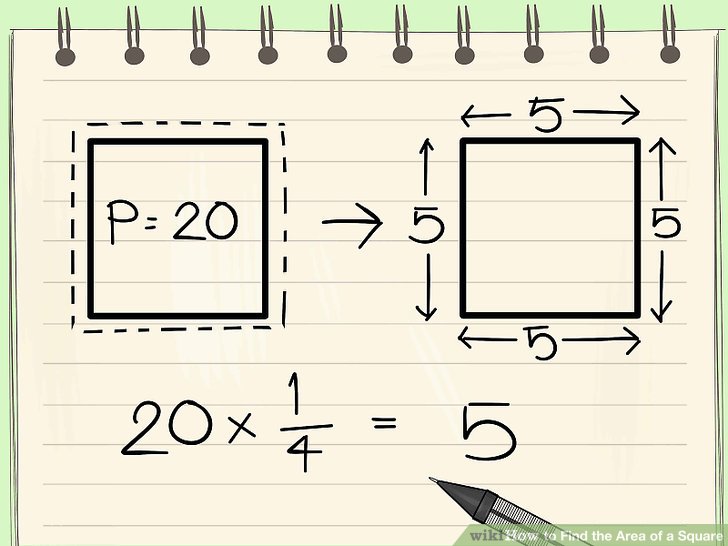 5
P = 20
5
5
5
20 × 1/4 = 5
wikiHow to Find the Area of a Square